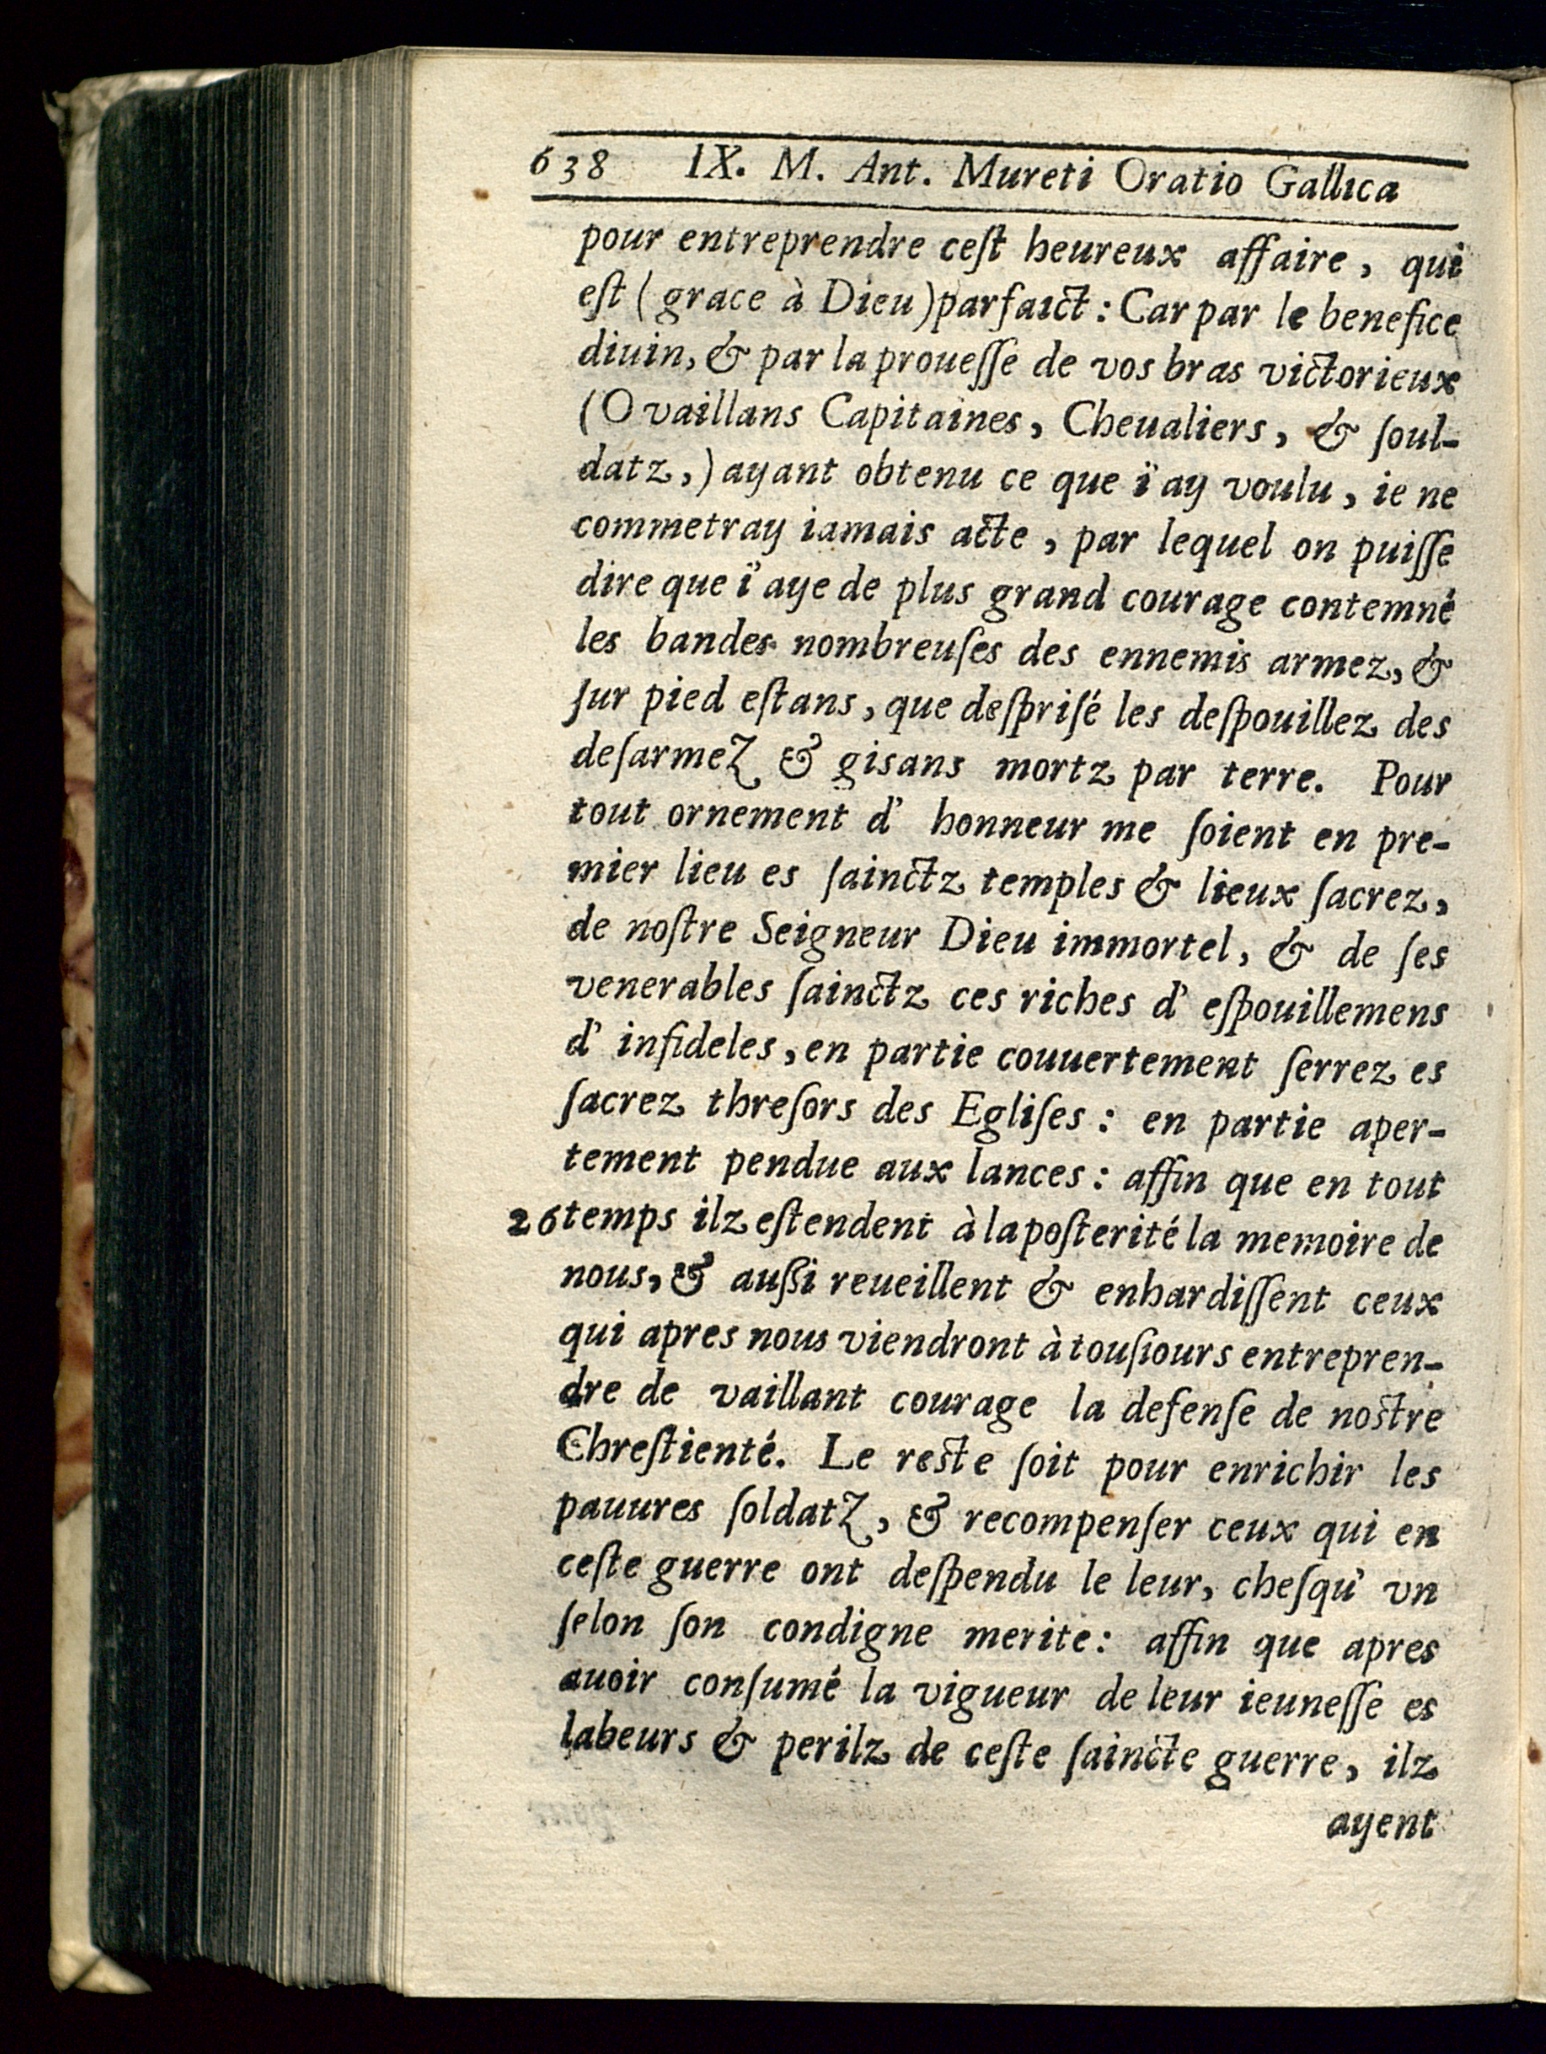 638 IX. M. Ant. Mureti Oratio Gallica
pour entreprendre ceſt heureux affaire, qui
eſt (grace à Dieu) parfaict: Car par le benefice
diuin, & par la proueſſe de vos bras victorieux
(O vaillans Capitaines, Cheualiers, & ſoul-
datz,) ayant obtenu ce que i'ay voulu, ie ne
commetray iamais acte, par lequel on puiſſe
dire que i'aye de plus grand courage contemné
les bandes nombreuſes des ennemis armez, &
ſur pied eſtans, que deſpriſé les deſpouillez des
deſarmez & gisans mortz par terre. Pour
tout ornement d' honneur me ſoient en pre-
mier lieu es ſainctz temples & lieux ſacrez,
de noſtre Seigneur Dieu immortel, & de ſes
venerables ſainctz ces riches d' eſpouillemens
d' infideles, en partie couuertement ſerrez es
ſacrez threſors des Egliſes: en partie aper-
tement pendue aux lances: affin que en tout
26 temps ilz eſtendent à la poſterité la memoire de
nous, & auſſi reueillent & enhardiſſent ceux
qui apres nous viendront à touſiours entrepren-
dre de vaillant courage la defenſe de noſtre
Chreſtienté. Le reſte ſoit pour enrichir les
pauures ſoldatz, & recompenſer ceux qui en
ceſte guerre ont deſpendu le leur, cheſqu' vn
ſelon ſon condigne merite: affin que apres
auoir conſumé la vigueur de leur ieuneſſe es
labeurs & perilz de ceſte ſaincte guerre, ilz
ayent